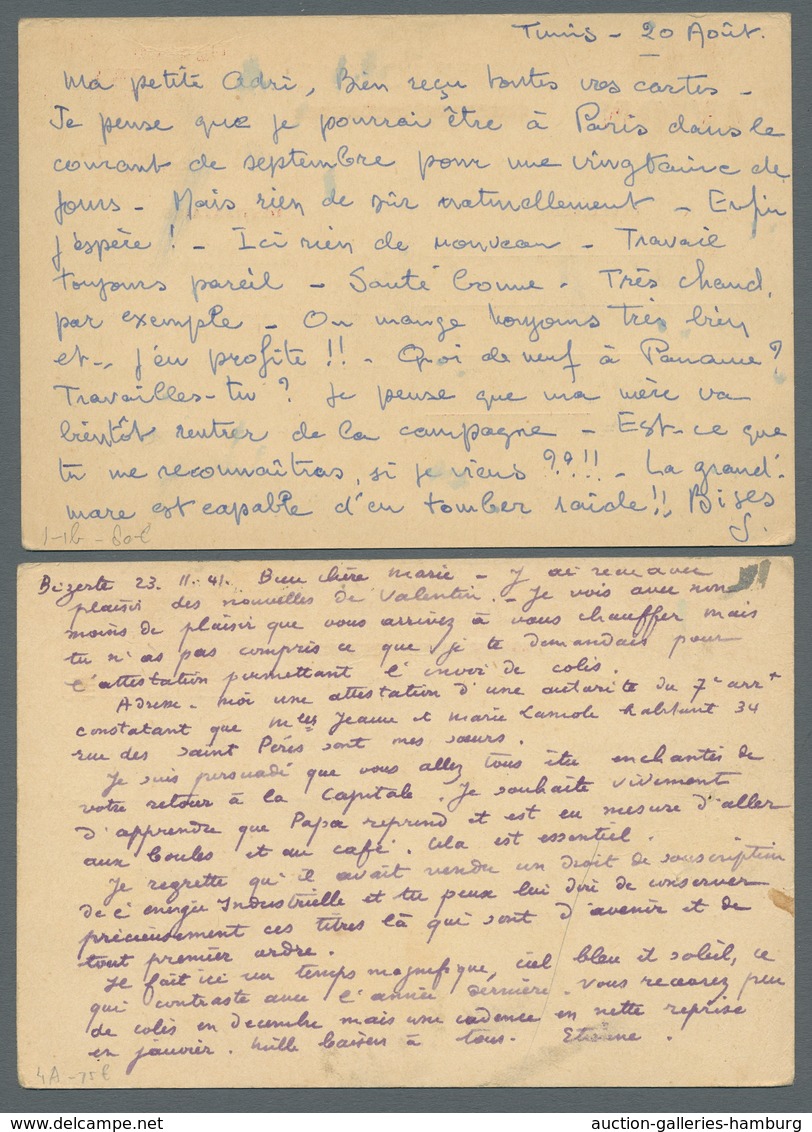 Tunis - 20 Août.
Ma petite Adri, Bien reçu toutes vos cartes -
Je pense que je pourrai être à Paris dans le
courant de septembre pour une vingtaine de
jours - Mais rien de sûr naturellement - Enfin
j'espère ! - Ici rien de nouveau - Travail
toujours pareil - Santé bonne - Très chaud,
par exemple - On mange toujours très bien
et.., j'en profite !! - Quoi de neuf à Paname ?
Travailles-tu ? Je pense que ma mère va
bientôt rentrer de la campagne - Est-ce que
tu me reconnaîtras, si je viens ??!!- La grand-
mare est capable d'en tomber raide !!, Bises
S.
1-1b - 80 c
Bizerte 23. 11. 41. Bien chère Marie - J'ai reçu avec
plaisir des nouvelles de Valentin. - Je vois avec non
moins de plaisir que vous arrivez à vous chauffer mais
tu n'as pas compris ce que je te demandais pour
l'attestation permettant l'envoi de colis.
Adresse-moi une attestation d'une autorité du 7e arrt
constatant que Mlles Jeanne et Marie Lamole habitant 34
rue des Saint Pères sont mes sœurs.
Je suis persuadé que vous allez tous être enchantés de
votre retour à la Capitale. Je souhaite vivement
d'apprendre que Papa reprend et est en mesure d'aller
aux boules et au café. Cela est essentiel.
Je regrette qu'il avait vendu un droit de souscription
de l'énergie Industrielle et tu peux lui dire de conserver
précieusement ces titres là qui sont d'avenir et de
tout premier ordre.
Il fait ici un temps magnifique, ciel bleu et soleil, ce
qui contraste avec l'année dernière. Vous recevrez peu
de colis en décembre mais une cadence en nette reprise
en janvier. Mille baisers à tous. Etienne.
4A - 75 c
auction-galleries-hamburg